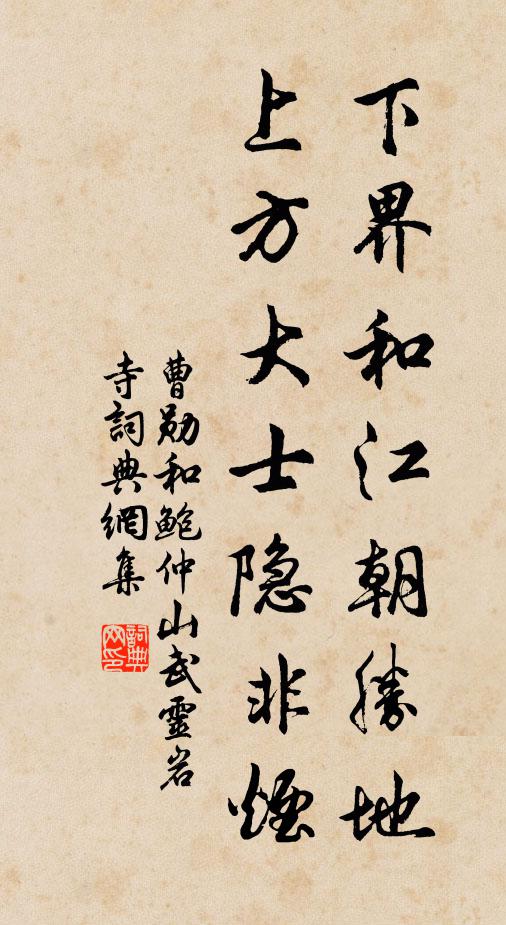 下界和江朝勝地
上方大士隐非煙
曹勋和鲍仲山武靈岩
寺詞典網集
詞典
网印